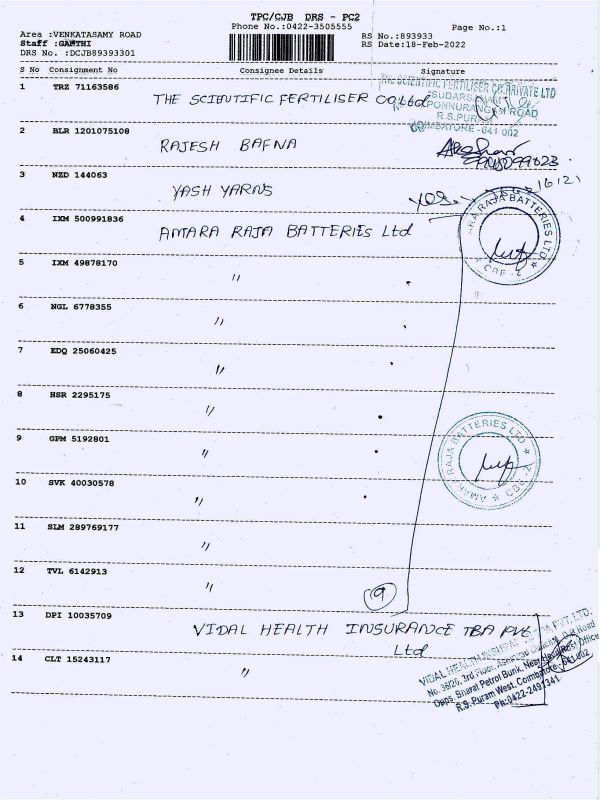 TPC/CJB DRS - PC2
Phone No.:0422-3505555
Page No.:1
Area :VENKATASAMY ROAD
RS No.:893933
Staff :GANTHI
RS Date:18-Feb-2022
DRS No. :DCJB89393301
S No Consignment No Consignee Details Signature
1 TRZ 71163586 THE SCIENTIFIC FERTILISER CO Ltd
THE SCIENTIFIC FERTILISER CO.PRIVATE LTD
PONNURANGAM ROAD
R.S.PURAM
COIMBATORE -641 002
2 BLR 1201075108 RAJESH BAFNA
3 NZD 144063 YASH YARNS yes.
4 IXM 500991836 AMARA RAJA BATTERIES Ltd
AMARA RAJA BATTERIES LTD
5 IXM 49878170 "
6 NGL 6778355 "
7 EDQ 25060425 "
8 HSR 2295175 "
9 GPM 5192801 "
AMARA RAJA BATTERIES LTD
10 SVK 40030578 "
11 SLM 289769177 "
12 TVL 6142913 "
9
13 DPI 10035709 VIDAL HEALTH INSURANCE TBA PVt
Ltd
14 CLT 15243117 "
VIDAL HEALTH INSURANCE TPA PVT. LTD.
No. 3B/26, 3rd Floor,
Opps. Bharat Petrol Bunk, Near Head Post Office
R.S. Puram West, Coimbatore - 641 002